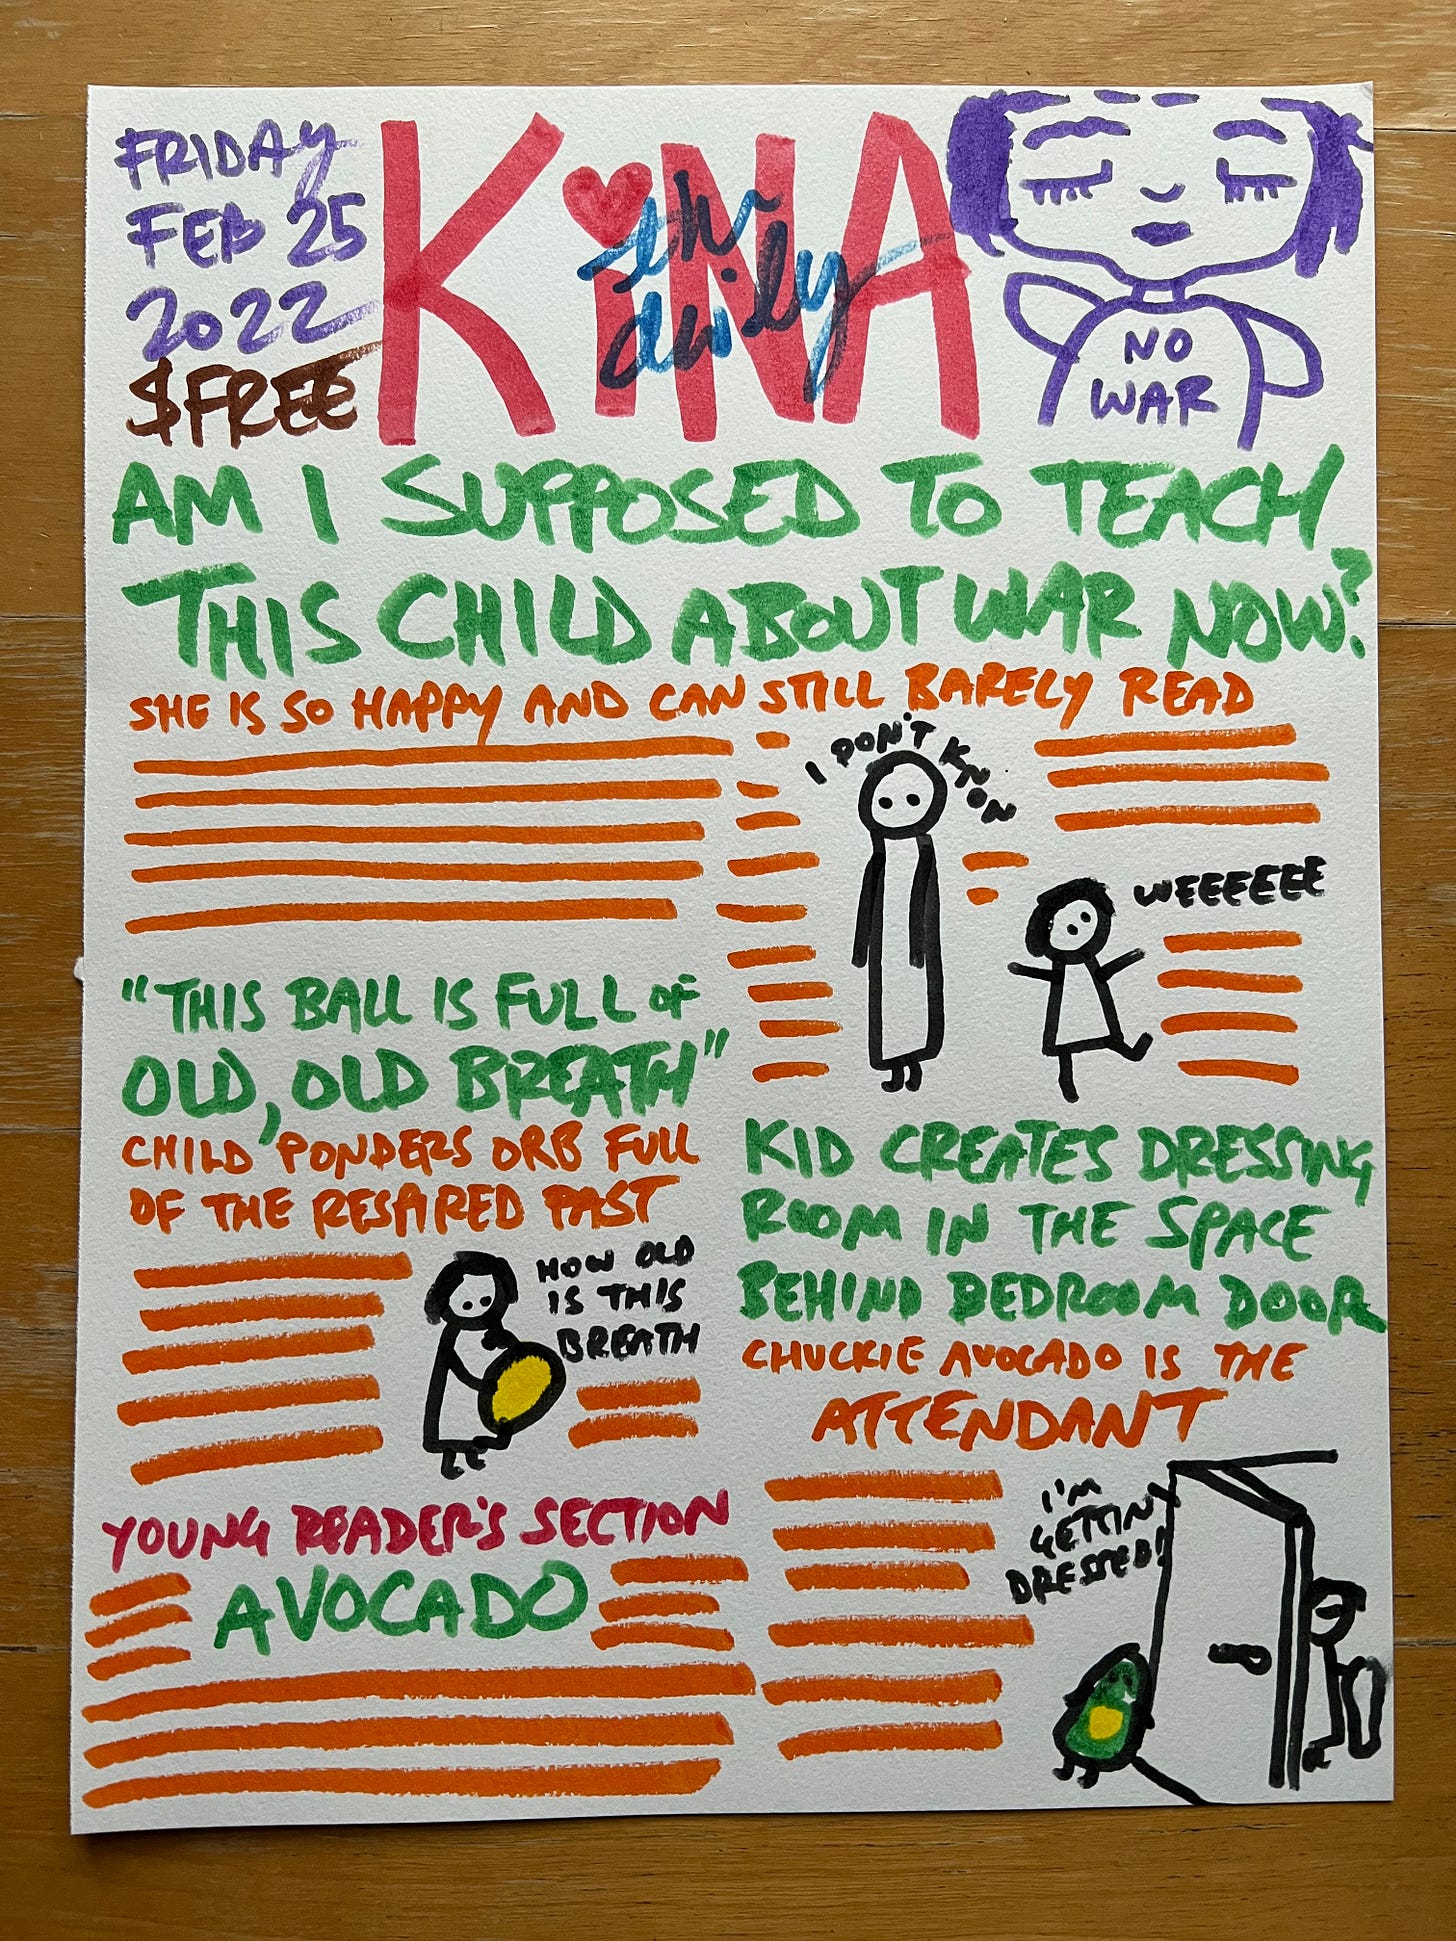 FRIDAY
FEB 25
2022
$FREE
KiNA
the
daily
NO
WAR
AM I SUPPOSED TO TEACH
THIS CHILD ABOUT WAR NOW?
SHE IS SO HAPPY AND CAN STILL BARELY READ
I DON'T KNOW
WEEEEEE
"THIS BALL IS FULL OF
OLD, OLD BREATH"
CHILD PONDERS ORB FULL
OF THE RESPIRED PAST
HOW OLD
IS THIS
BREATH
KID CREATES DRESSING
ROOM IN THE SPACE
BEHIND BEDROOM DOOR
CHUCKIE AVOCADO IS THE
ATTENDANT
I'M
GETTING
DRESSED!
YOUNG READER'S SECTION
AVOCADO